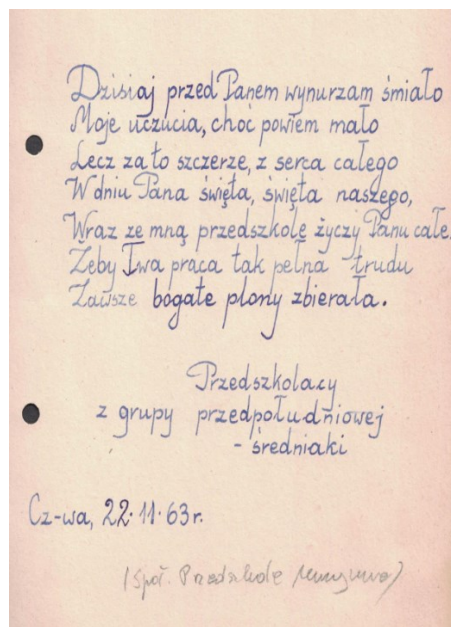 Dzisiaj przed Panem wynurzam śmiało
Moje uczucia, choć powiem mało
Lecz za to szczerze, z serca całego
W dniu Pana święta, święta naszego,
Wraz ze mną przedszkole życzy Panu całe.
Żeby Twa praca tak pełna trudu
Zawsze bogate plony zbierała.
Przedszkolacy
z grupy przedpołudniowej
- średniaki
Cz-wa, 22.11.63r.
(Społ. Przedszkole